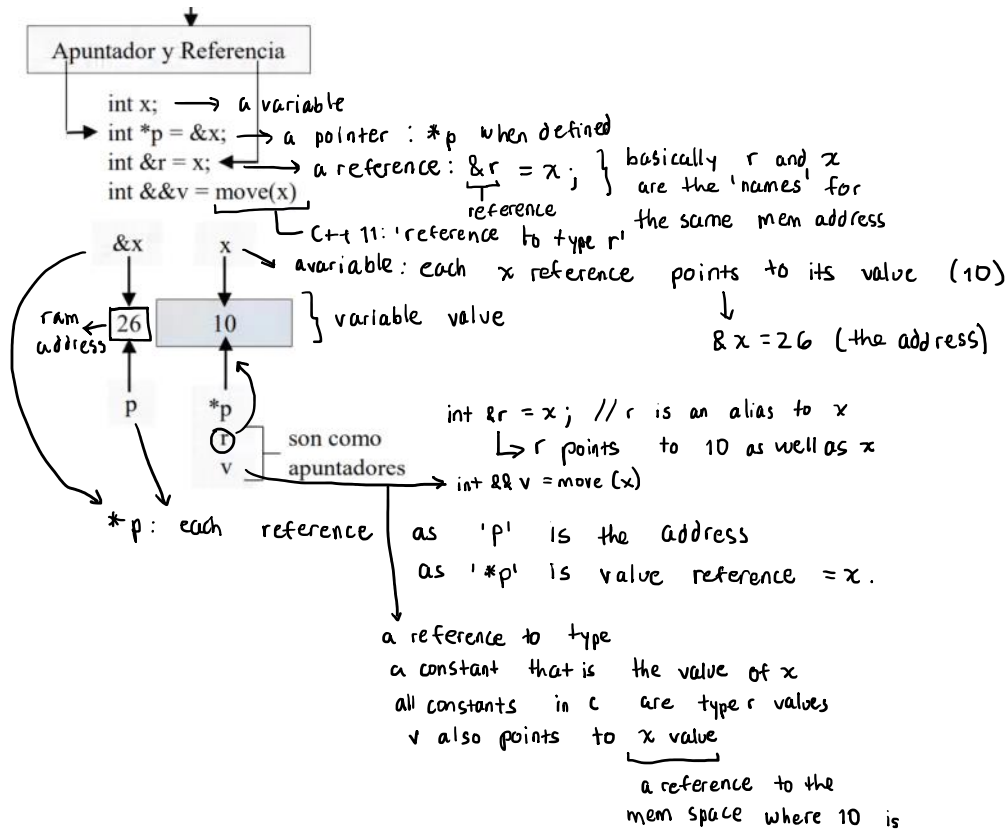 Apuntador y Referencia
int x; → a variable
int *p = &x; → a pointer : *p when defined
int &r = x; → a reference : &r = x ; } basically r and x
are the 'names' for
the same mem address
reference
int &&v = move(x)
C++ 11: 'reference to type r'
&x x
a variable : each x reference points to its value (10)
& x = 26 (the address)
ram
address
26 10 } variable value
p *p
r
v
son como
apuntadores
int &r = x ; // r is an alias to x
r points to 10 as well as x
int && v = move (x)
*p : each reference as 'p' is the address
as '*p' is value reference = x .
a reference to type
a constant that is the value of x
all constants in c are type r values
v also points to x value
a reference to the
mem space where 10 is